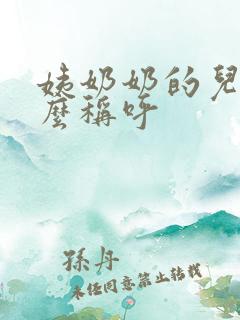 姨奶奶的兒
麼稱呼
孫丹
未经同意禁止转载